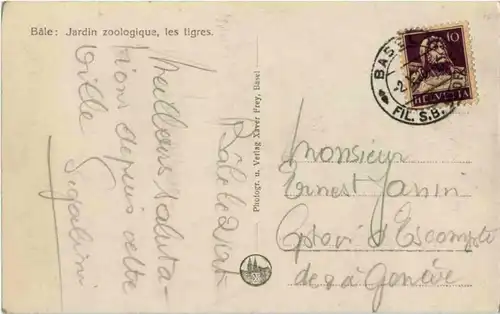 Bâle: Jardin zoologique, les tigres.
Bâle le 2 oct
Meilleures saluta-
tions depuis cette
ville
Photogr. u. Verlag Xaver Frey, Basel
10
HELVETIA
BAS
FIL. S.B.
Monsieur
Ernest Janin
d'Escompte
de à Genève